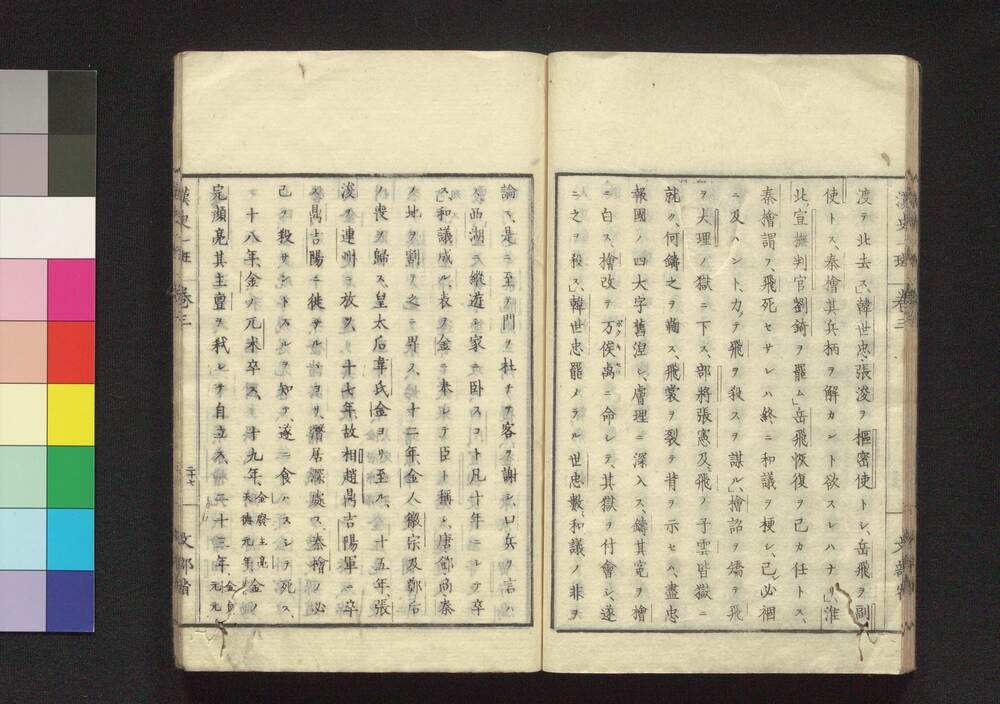 渡テ北去ス、韓世忠、張浚ヲ樞密使トシ、岳飛ヲ副
使トス、秦檜其兵柄ヲ解カント欲スレハナリ」淮
北宣撫判官劉錡ヲ罷ム」岳飛恢復ヲ己カ任トス、
秦檜謂フ、飛死セサレハ終ニ和議ヲ梗シ、己レ必禍
ニ及ハント、力メテ飛ヲ殺スヲ謀ル」檜詔ヲ矯テ飛
ヲ大理ノ獄ニ下ス、部將張憲及飛ノ子雲皆獄ニ
就ク、何鑄之ヲ鞫ス、飛裳ヲ裂テ背ヲ示セハ、盡忠
報國ノ四大字舊湼シ膚理ニ深入ス、鑄其寃ヲ檜
ニ白ス、檜改テ万俟卨ニ命シテ、其獄ヲ付會シ、遂
ニ之ヲ殺ス」韓世忠罷ノラル世忠數和議ノ非ヲ
論ス、是ニ至テ門ヲ杜チテ客ヲ謝シ、口兵ヲ言ハ
ス、西湖ニ縱遊シ、家ニ卧スコト凡十年ニシテ卒
ス」和議成ル、表ヲ金ニ奉シテ臣ト稱シ、唐鄧商秦
ノ地ヲ割テ之ニ畀ス、十二年、金人徽宗及鄭后
ノ喪ヲ歸ス、皇太后韋氏金ヨリ至ル、十五年、張
浚ヲ連州ニ放ツ、十七年、故相趙鼎吉陽軍ニ卒
ス鼎吉陽ニ徙サル、ヨリ、潛居深處ス、秦檜ノ必
己ヲ殺サントスルヲ知テ、遂ニ食ハスシテ死ス、
十八年、金ノ兀朮卒ス、十九年、金廢主亮天德元年金ノ
完顔亮其主亶ヲ弑シテ自立ス、二十三年、金貞元元
漢史一班 卷三
二十七
文部省